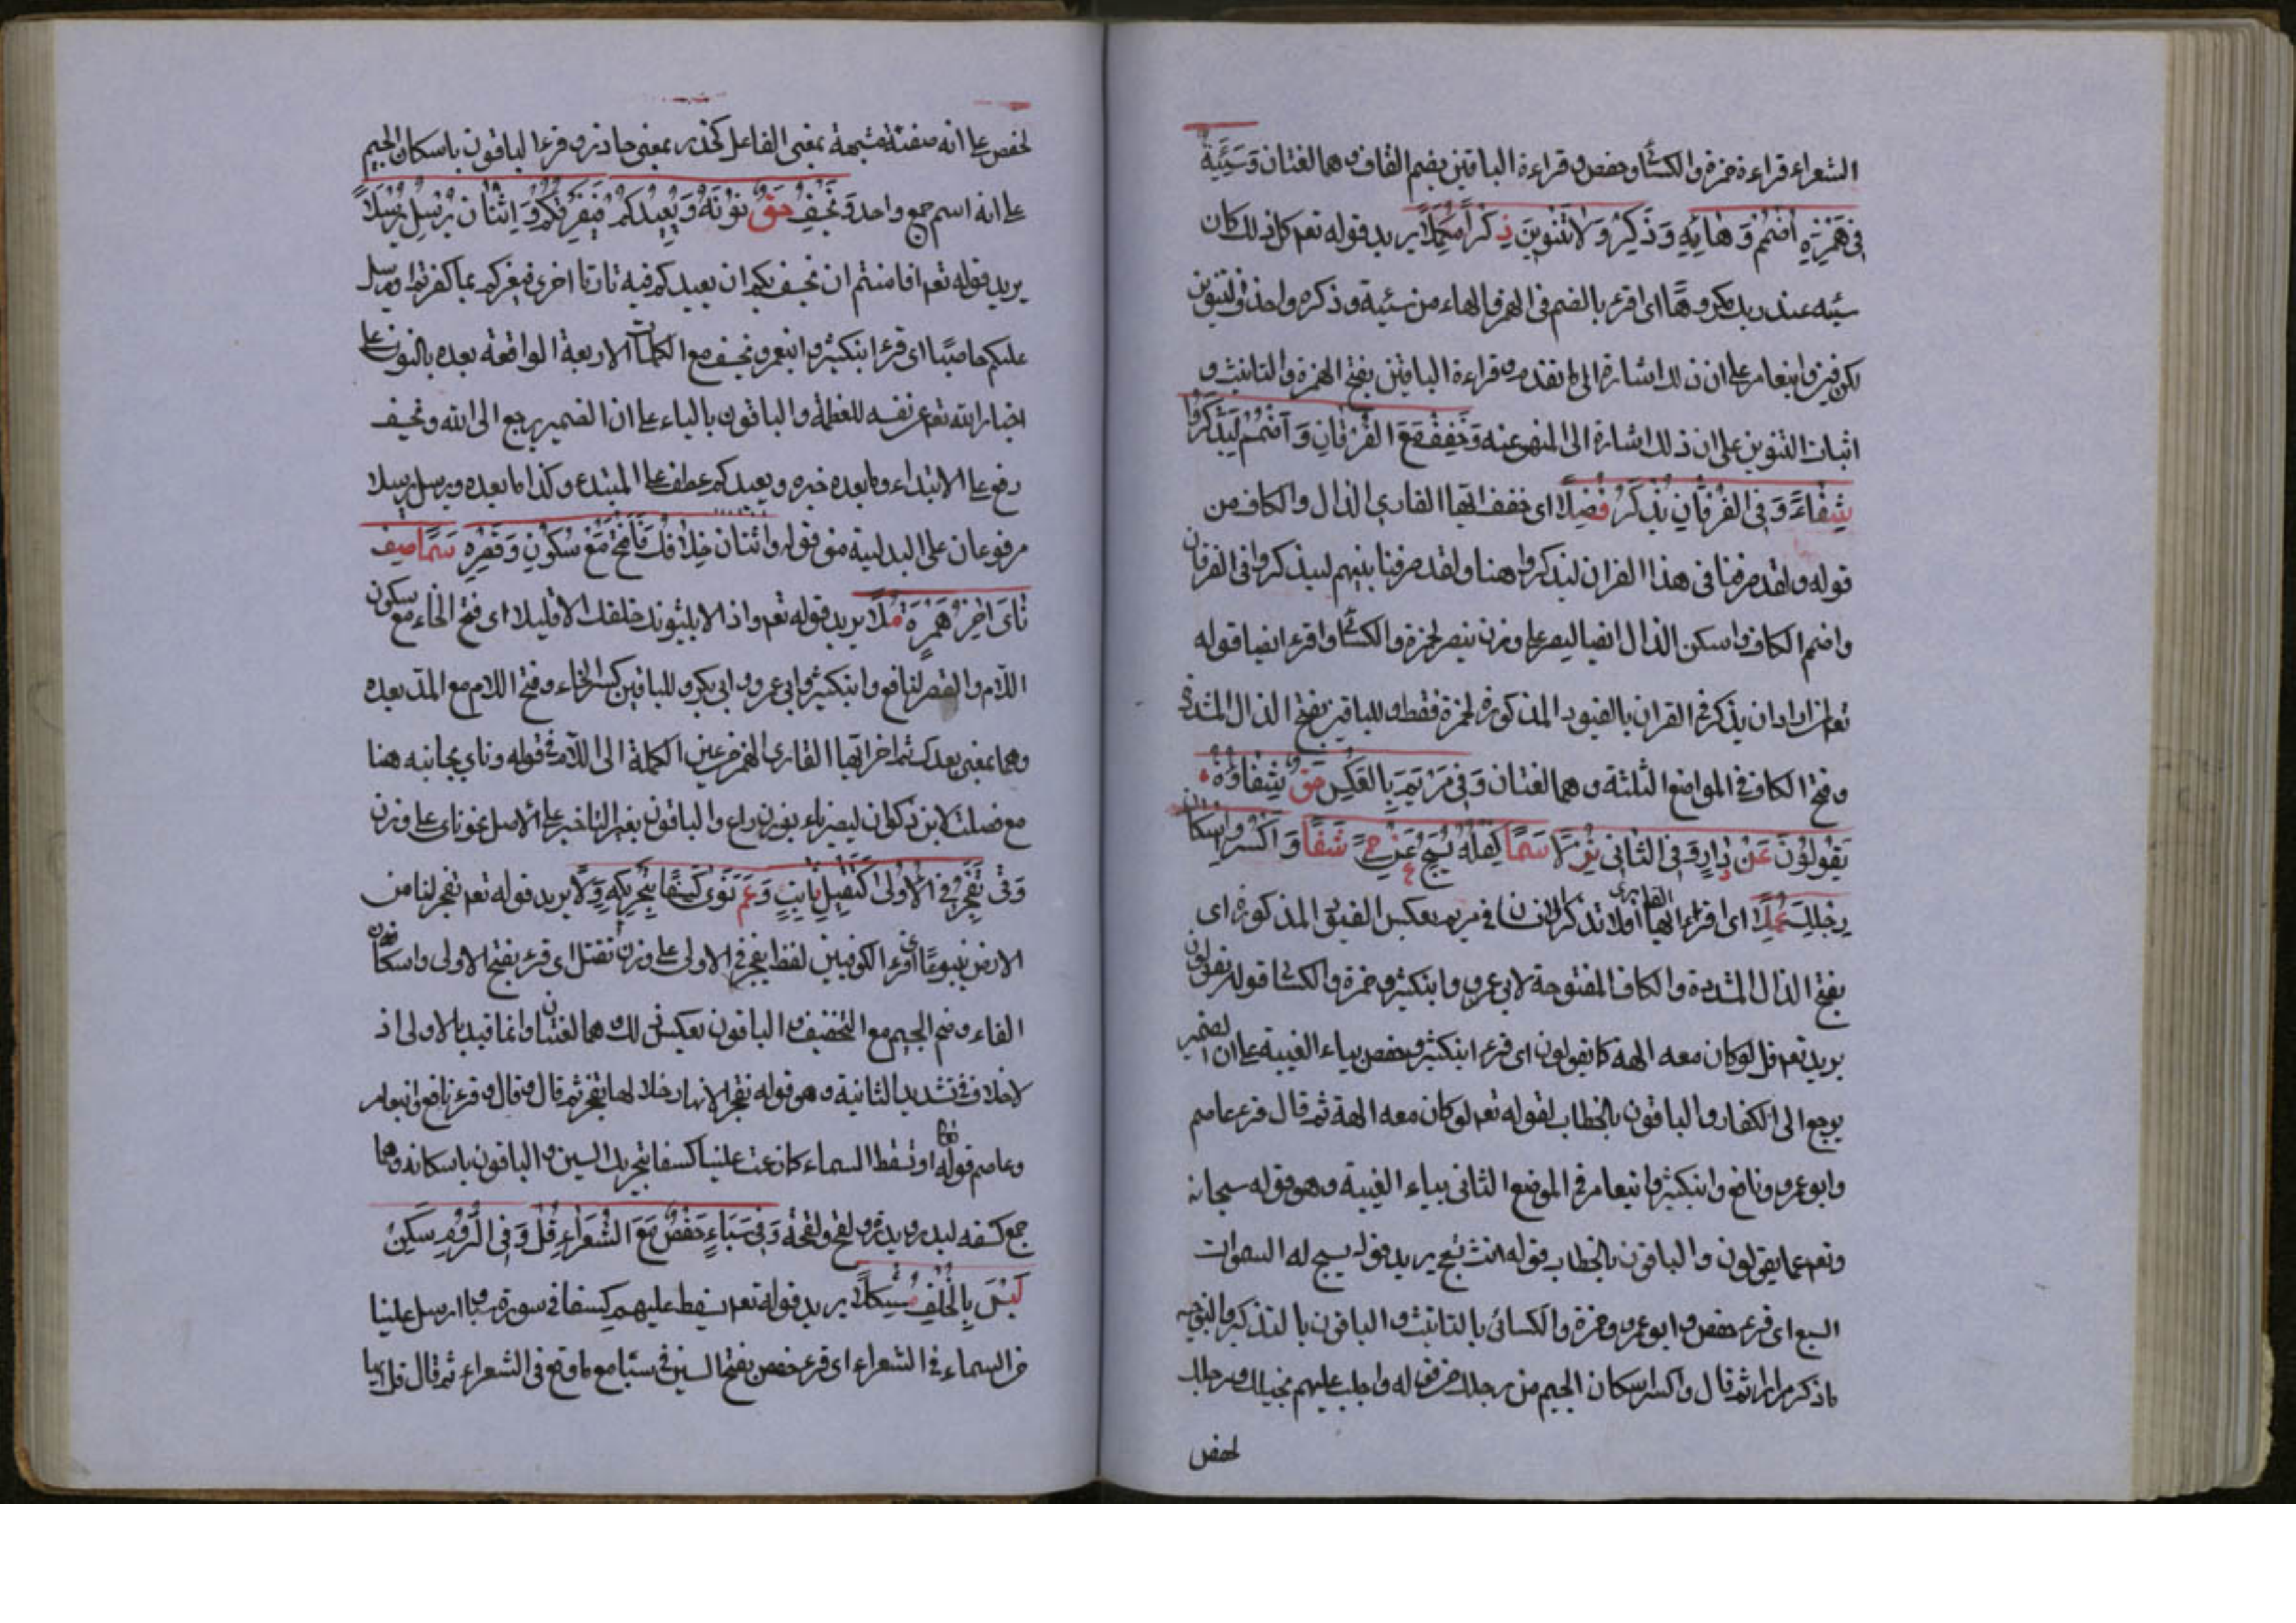 الشعراء قراءة حمزة والكسائي وحفص وقراءة الباقين بضم القاف وهما لغتان وَسَيِّئَةً
فِي هَمْزِهِ اضْمُمْ وَهَائِهِ وَذَكِّرْ وَلَا تَنْوِينَ ذِكْرًا مُكَمَّلَا يريد قوله تعم كل ذلك كان
سيئه عند ربك مكروها اى اقرء بالضم فى الهمز والهاء من سيئة وذكره واحذف التنوين
لكوفيين وابنعامر على ان ذلك اشارة الى ما تقدم وقراءة الباقين بفتح الهمزة والتانيث و
اثبات التنوين على ان ذلك اشارة الى المنهى عنه وَخَفِّفْ مَعَ الفُرْقَانِ وَاضْمُمْ لِيَذْكُرُوا
شِفَاءً وَفِى الفُرْقَانِ يَذْكُرُ فُصِّلَا اى خفف ايها القارى الذال والكاف من
قوله ولقد صرفنا فى هذا القران ليذكروا هنا ولقد صرفنا بينهم ليذكروا فى الفرقان
واضم الكاف واسكن الذال ايضا ليصير على وزن ينصر لحمزة والكسائي واقرء ايضا قوله
تعم لمن اراد ان يذكر فى القران بالقيود المذكورة لحمزة فقط وللباقين بفتح الذال المشددة
وفتح الكاف فى المواضع الثلثة وهما لغتان وَفِى مَرْيَمٍ بِالعَكْسِ حَقٌّ شِفَاؤُهُ
يَقُولُونَ عَنْ دَارٍ وَفِى الثَّانِى نُزِّلَا سَمَا كِفْلُهُ يُسَبِّحُ عَنْ حِمًى شَفَا وَاكْسِرُوا اِسْكَانَ
رِجْلِكَ عُمَّلَا اى اقرء ايها القارى اولا تذكر الانسان فى مريم بعكس القيود المذكورة اى
بفتح الذال المشددة والكاف المفتوحة لابى عمرو وابنكثير وحمزة والكسائى قوله يقولون
يريد تعم قل لو كان معه الهة كما يقولون اى قرء ابنكثير وحفص بياء الغيبة على ان الضمير
يرجع الى الكفار والباقون بالخطاب لقوله تعم لو كان معه الهة ثم قال قرء عاصم
وابو عمرو ونافع وابنكثير وابنعامر فى الموضع الثانى بياء الغيبة وهو قوله سبحانه
وتعم عما يقولون والباقون بالخطاب قوله انث يسبح يريد قوله يسبح له السموات
السبع اى قرء حفص وابو عمرو وحمزة والكسائى بالتانيث والباقون بالتذكير والتوجيه
ما ذكر مرارا ثم قال واكسر اسكان الجيم من رجلك من قوله واجلب عليهم بخيلك ورجلك
لحفص
لحفص على انه صفة مشبهة بمعنى الفاعل كحذر بمعنى حاذر وقرء الباقون باسكان الجيم
على انه اسم جمع واحد وَنَخْسِفَ حَقٌّ نُونُهُ وَيُعِيدَكُمْ فَيُغْرِقَكُمْ وَاِثْنَانِ يُرْسِلَ يُرْسِلَا
يريد قوله تعم افامنتم ان نخسف بكم ان يعيدكم فيه تارتا اخرى فيغرقكم بما كفرتم او يرسل
عليكم حاصبا اى قرء ابنكثير وابنعمرو نخسف مع الكلمات الاربعة الواقعة بعده بالنون على
اخبار الله تعم عن نفسه للعظمة والباقون بالياء على ان الضمير يرجع الى الله ونخسف
رفع على الابتداء وما بعده خبره ويعيدكم عطف على المبتدء وكذا ما بعده ويرسل يرسلا
مرفوعان على البدلية من قوله واثنان خِلَافَكَ فَافْتَحْ مَعْ سُكُونٍ وَقَصْرِهِ سَمَا صِفْ
نَأَى اَخِّرْ هَمْزَهُ مُلَا يريد قوله تعم واذا لا يلبثون خلفك الا قليلا اى فتح الخاء مع سكون
اللام والقصر لنافع وابنكثير وابى عمرو وابى بكر وللباقين كسر الخاء وفتح اللام مع المد بعده
وهما بمعنى بعدك ثم اخر ايها القارى الهمز من عين الكلمة الى اللام فى قوله وناى بجانبه هنا
مع فصلت لابن ذكوان ليصير ناء بوزن راع والباقون بغير التاخير على الاصل نحو ناى على وزن
وَفى تُفَجِّرَ فِى الْاُولَى كَتَقْتُلَ ثَابِتٌ وَعَمَّ نَدَى كِسْفًا بِتَحْرِيكِهِ وَلَا يريد قوله تعم تفجر لنا من
الارض ينبوعا اى قرء الكوفيين لفظ تفجر فى الاولى على وزن تقتل اى قرء بفتح الاولى واسكان
الفاء وضم الجيم مع التخفيف والباقون بعكس ذلك وهما لغتان وانما قيد بالاولى اذ
لاخلاف فى تشديد الثانية وهو قوله تفجر الانهار خلالها تفجر ثم قال وقال وقرء نافع وابنعامر
وعاصم قوله او تسقط السماء كما زعمت علينا كسفا بتحريك السين والباقون باسكانه وهما
جمع كسفه لبدر وبدرة ولقح ولقحة وَفِى سَبَاءٍ حَفْصٌ مَعَ الشُّعَرَاءِ قُلْ وَفِى الرُّومِ سَكِّنْ
لَيْسَ بِالْخُلْفِ مُشْكِلَا يريد قوله تعم نسقط عليهم كسفا فى سورة سبا ارسل علينا
من السماء فى الشعراء اى قرء حفص بفتح السين فى سبا مع ما وقع فى الشعراء ثم قال قل ايها